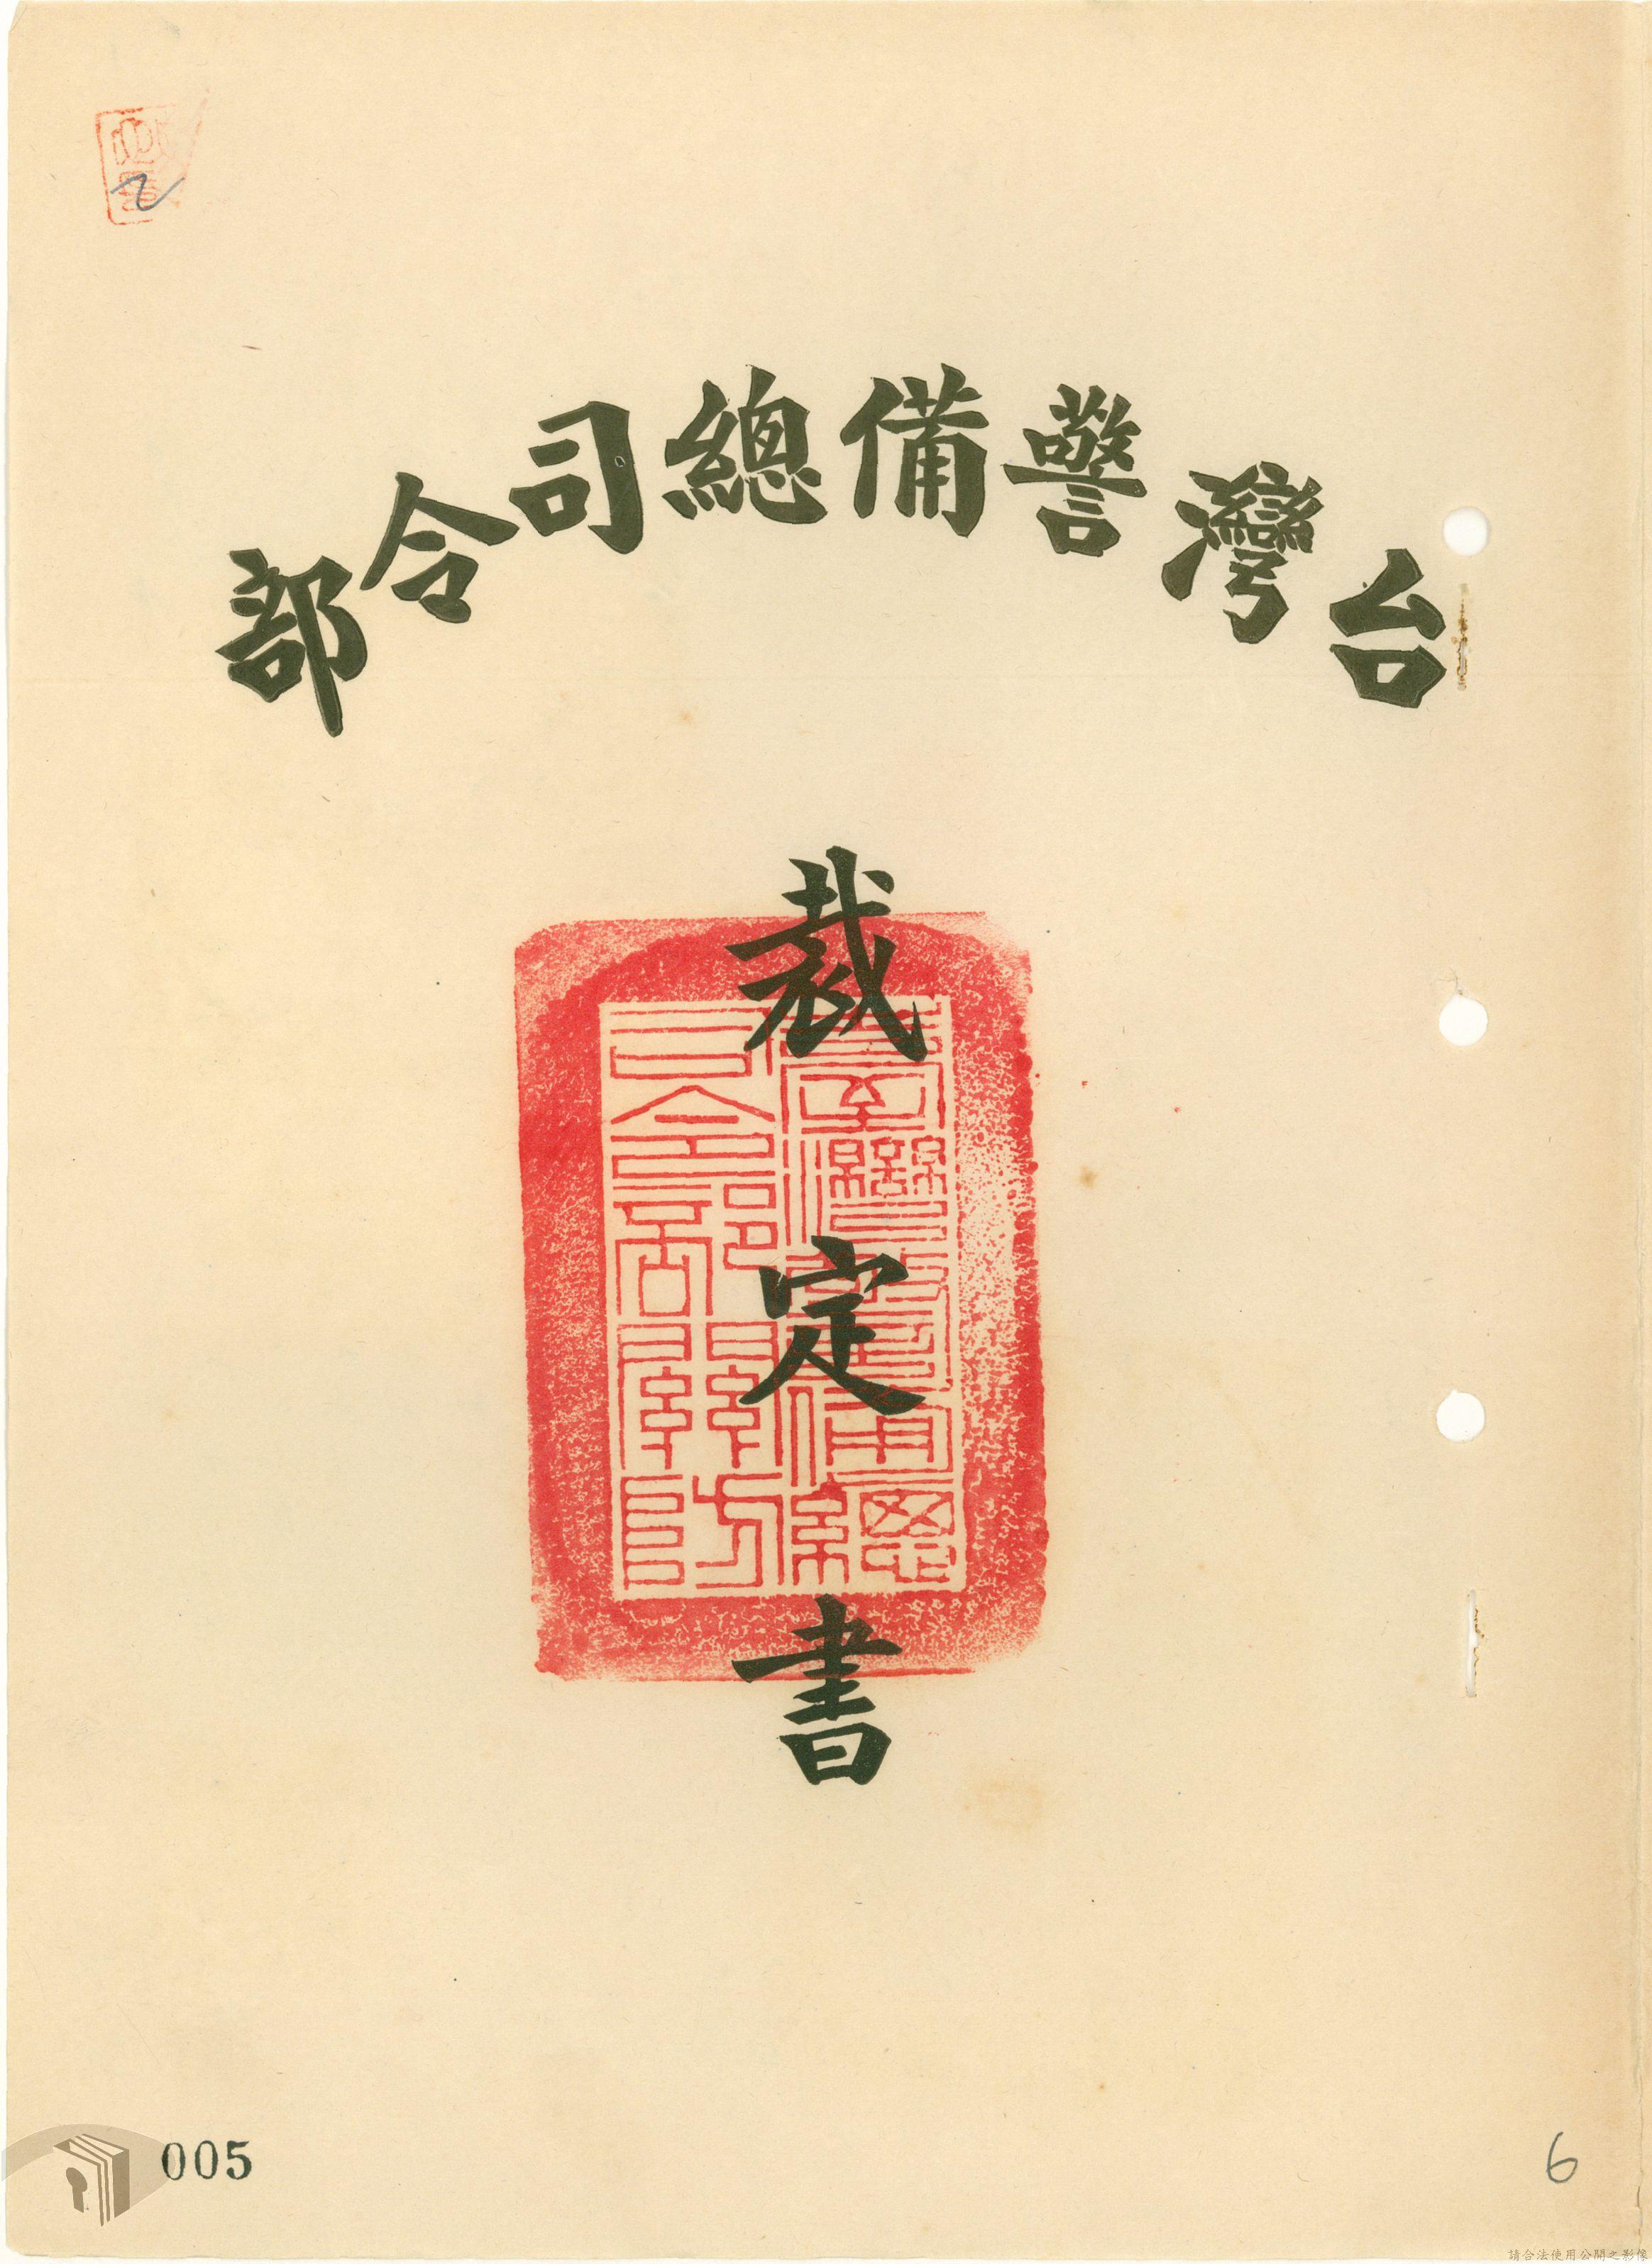 台灣警備總司令部
裁定書
臺灣警備總
司令部關防
005
6
請合法使用公開之影像